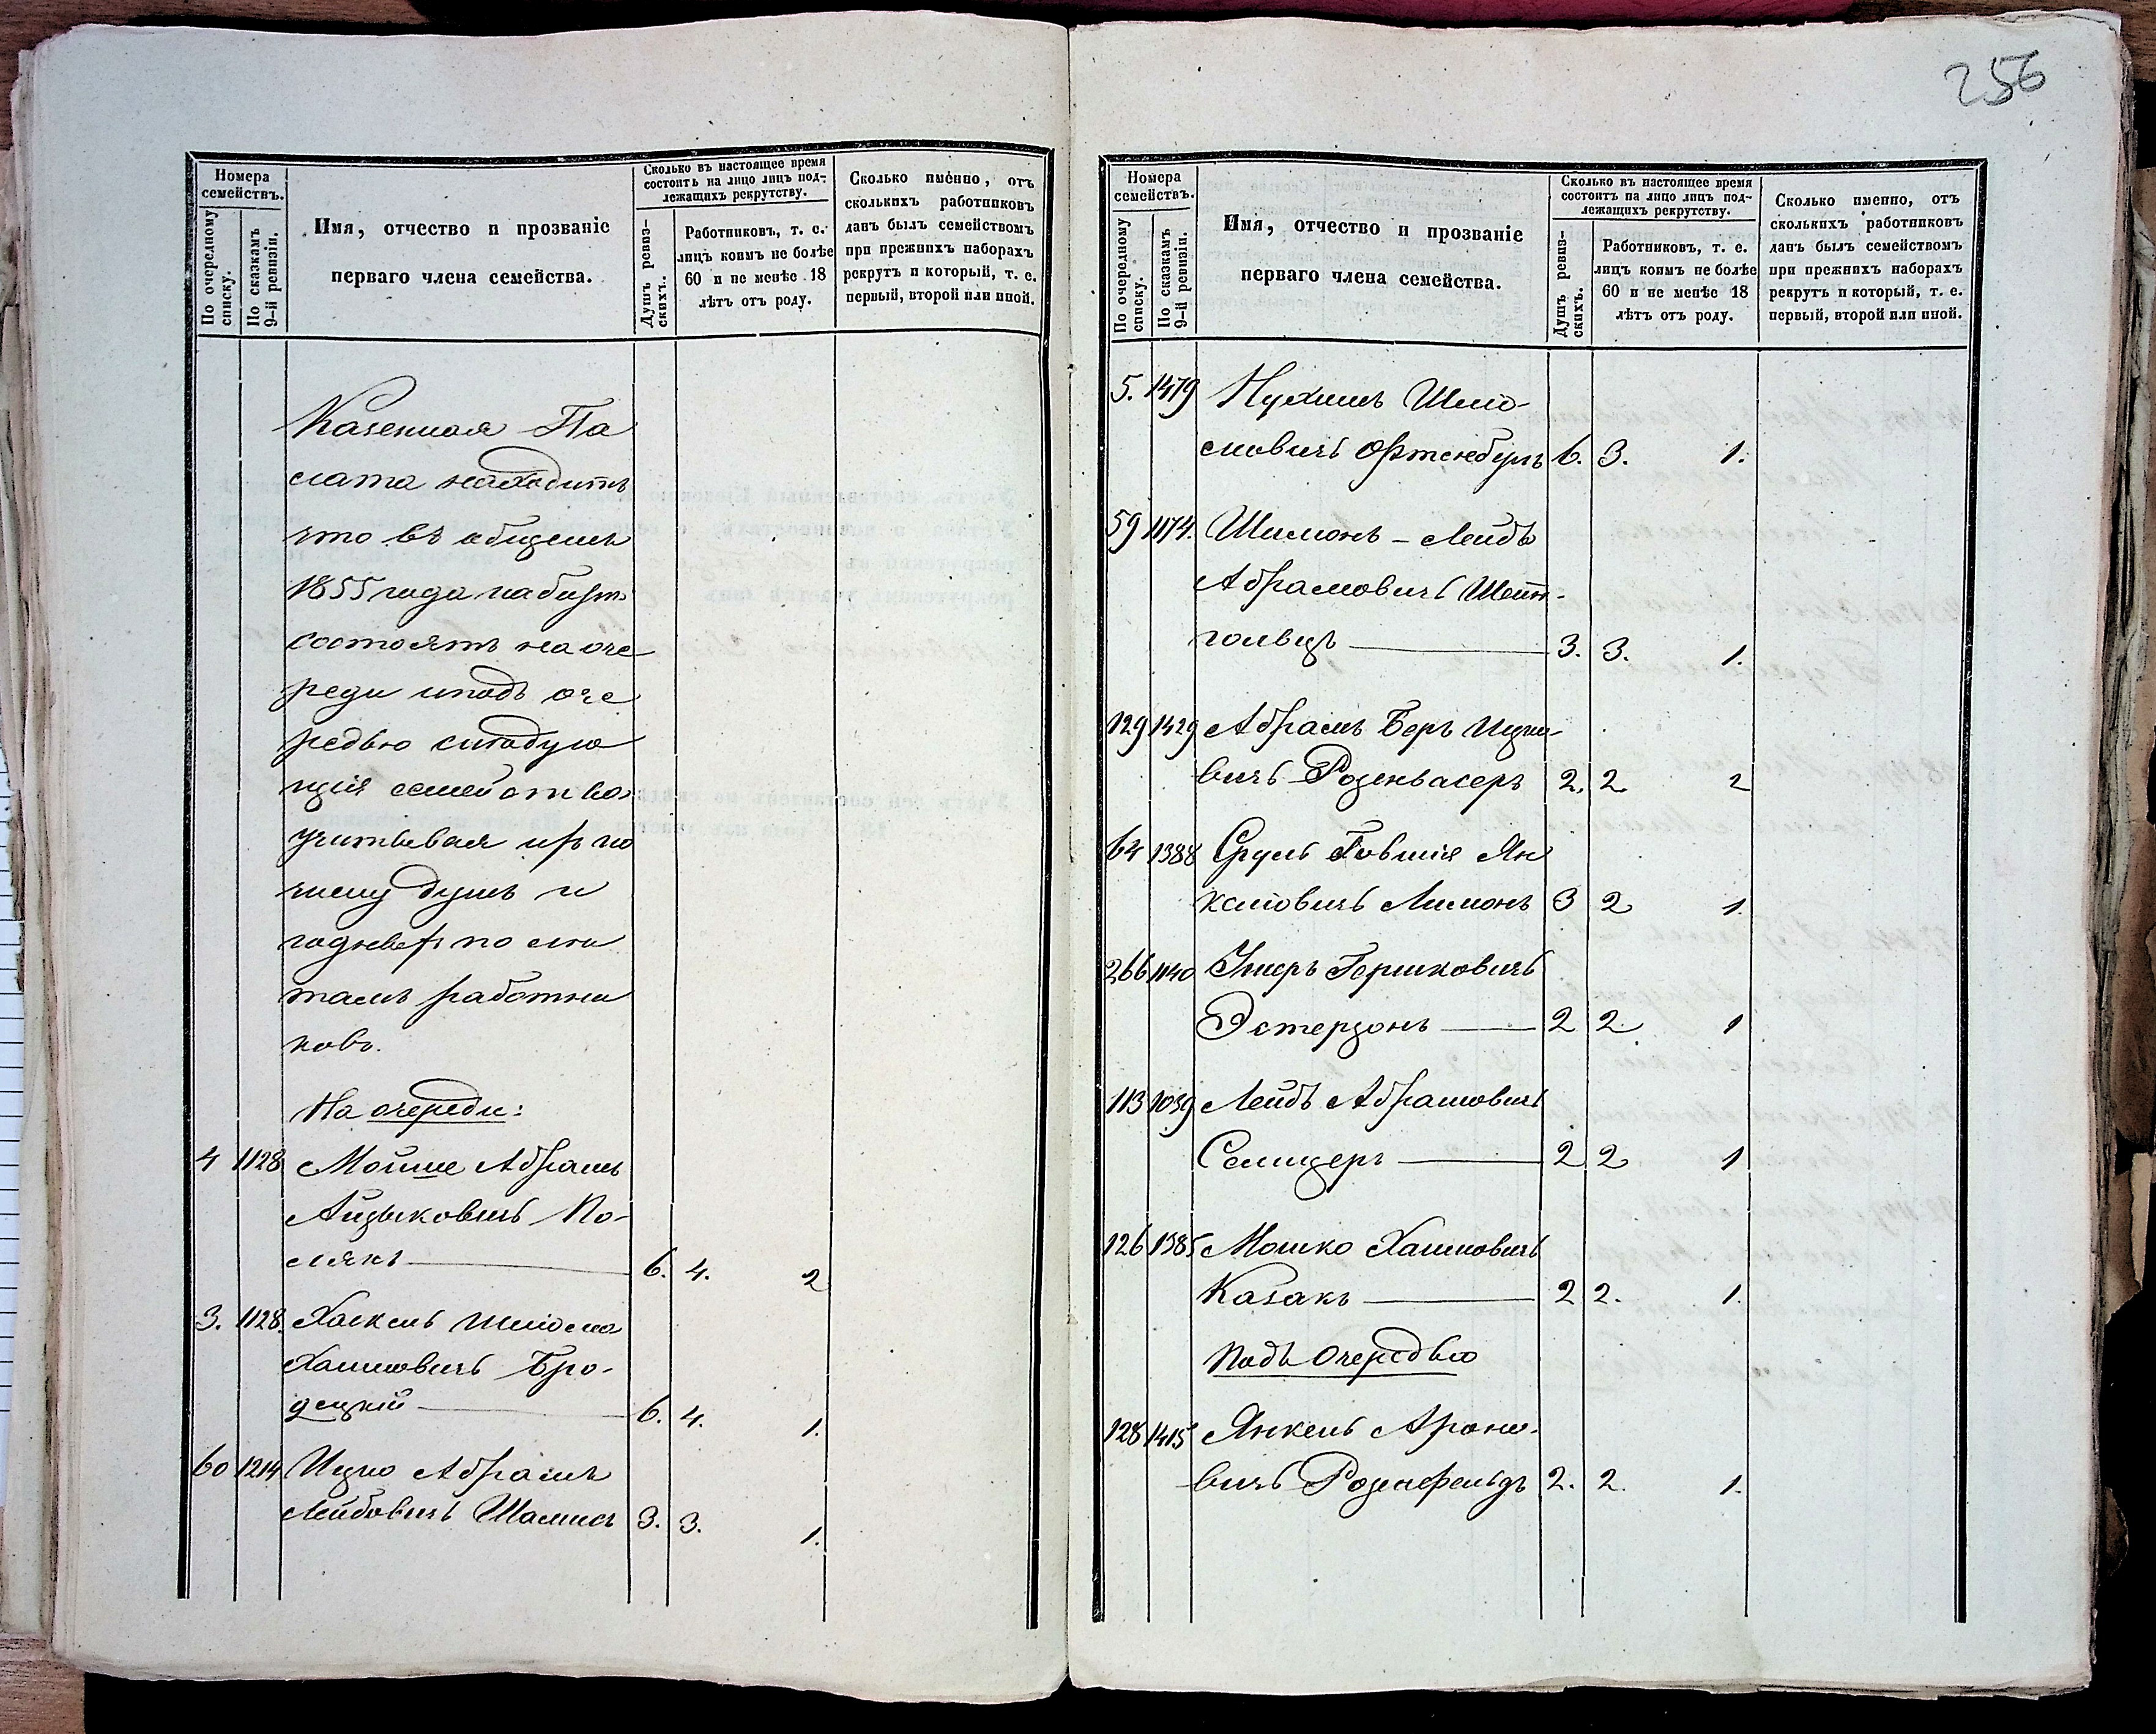 256
Номера
семействъ.
По очередному
списку.
По сказкамъ
9-й ревизіи.
Имя, отчество и прозваніе
перваго члена семейства.
Сколько въ настоящее время
состоитъ на лицо лицъ под-
лежащихъ рекрутству.
Душъ ревиз-
скихъ.
Работниковъ, т. е.
лицъ коимъ не болѣе
60 и не менѣе 18
лѣтъ отъ роду.
Сколько именно, отъ
сколькихъ работниковъ
данъ былъ семействомъ
при прежнихъ наборахъ
рекрутъ и который, т. е.
первый, второй или иной.
Казенная Па
лата находитъ
что въ общемъ
1855 года наборѣ
состоятъ на оче
реди и подъ оче
редью слѣдую
щія семейства
учитывая ихъ по
числу душъ и
годныхъ по лѣ
тамъ работни
ковъ.
На очереди:
4 1128 Мойше Абрамъ
Айзыковичь По-
лякъ 6. 4. 2
3. 1128. Хаскель Шлома
Хаимовичь Бро-
децкій 6. 4. 1.
60 1214 Ицко Абрамъ
Лейбовичь Шамисъ 3. 3. 1.
Номера
семействъ.
По очередному
списку.
По сказкамъ
9-й ревизіи.
Имя, отчество и прозваніе
перваго члена семейства.
Сколько въ настоящее время
состоитъ на лицо лицъ под-
лежащихъ рекрутству.
Душъ ревиз-
скихъ.
Работниковъ, т. е.
лицъ коимъ не болѣе
60 и не менѣе 18
лѣтъ отъ роду.
Сколько именно, отъ
сколькихъ работниковъ
данъ былъ семействомъ
при прежнихъ наборахъ
рекрутъ и который, т. е.
первый, второй или иной.
5. 1479 Нухимъ Шлио-
мовичь 6. 3. 1.
59 1174. Шимонъ-Лейбъ
Абрамовичь
3. 3. 1.
129 1429 Абрамъ Беръ Ицко-
вичь Розенвасеръ 2. 2. 2
64 1388 Сруль Товшія Ян
келовичь Лимонъ 3 2 1.
266 1140 Умеръ Гершковичь
Эстерзонъ 2 2. 1
113 1039 Лейбъ Абрамовичь
Селицеръ 2 2 1
126 1385 Мошко Хаимовичь
Казакъ 2 2. 1.
Подъ Очередью
128 1415 Янкель Ароно-
вичь Розенфельдъ 2. 2. 1.